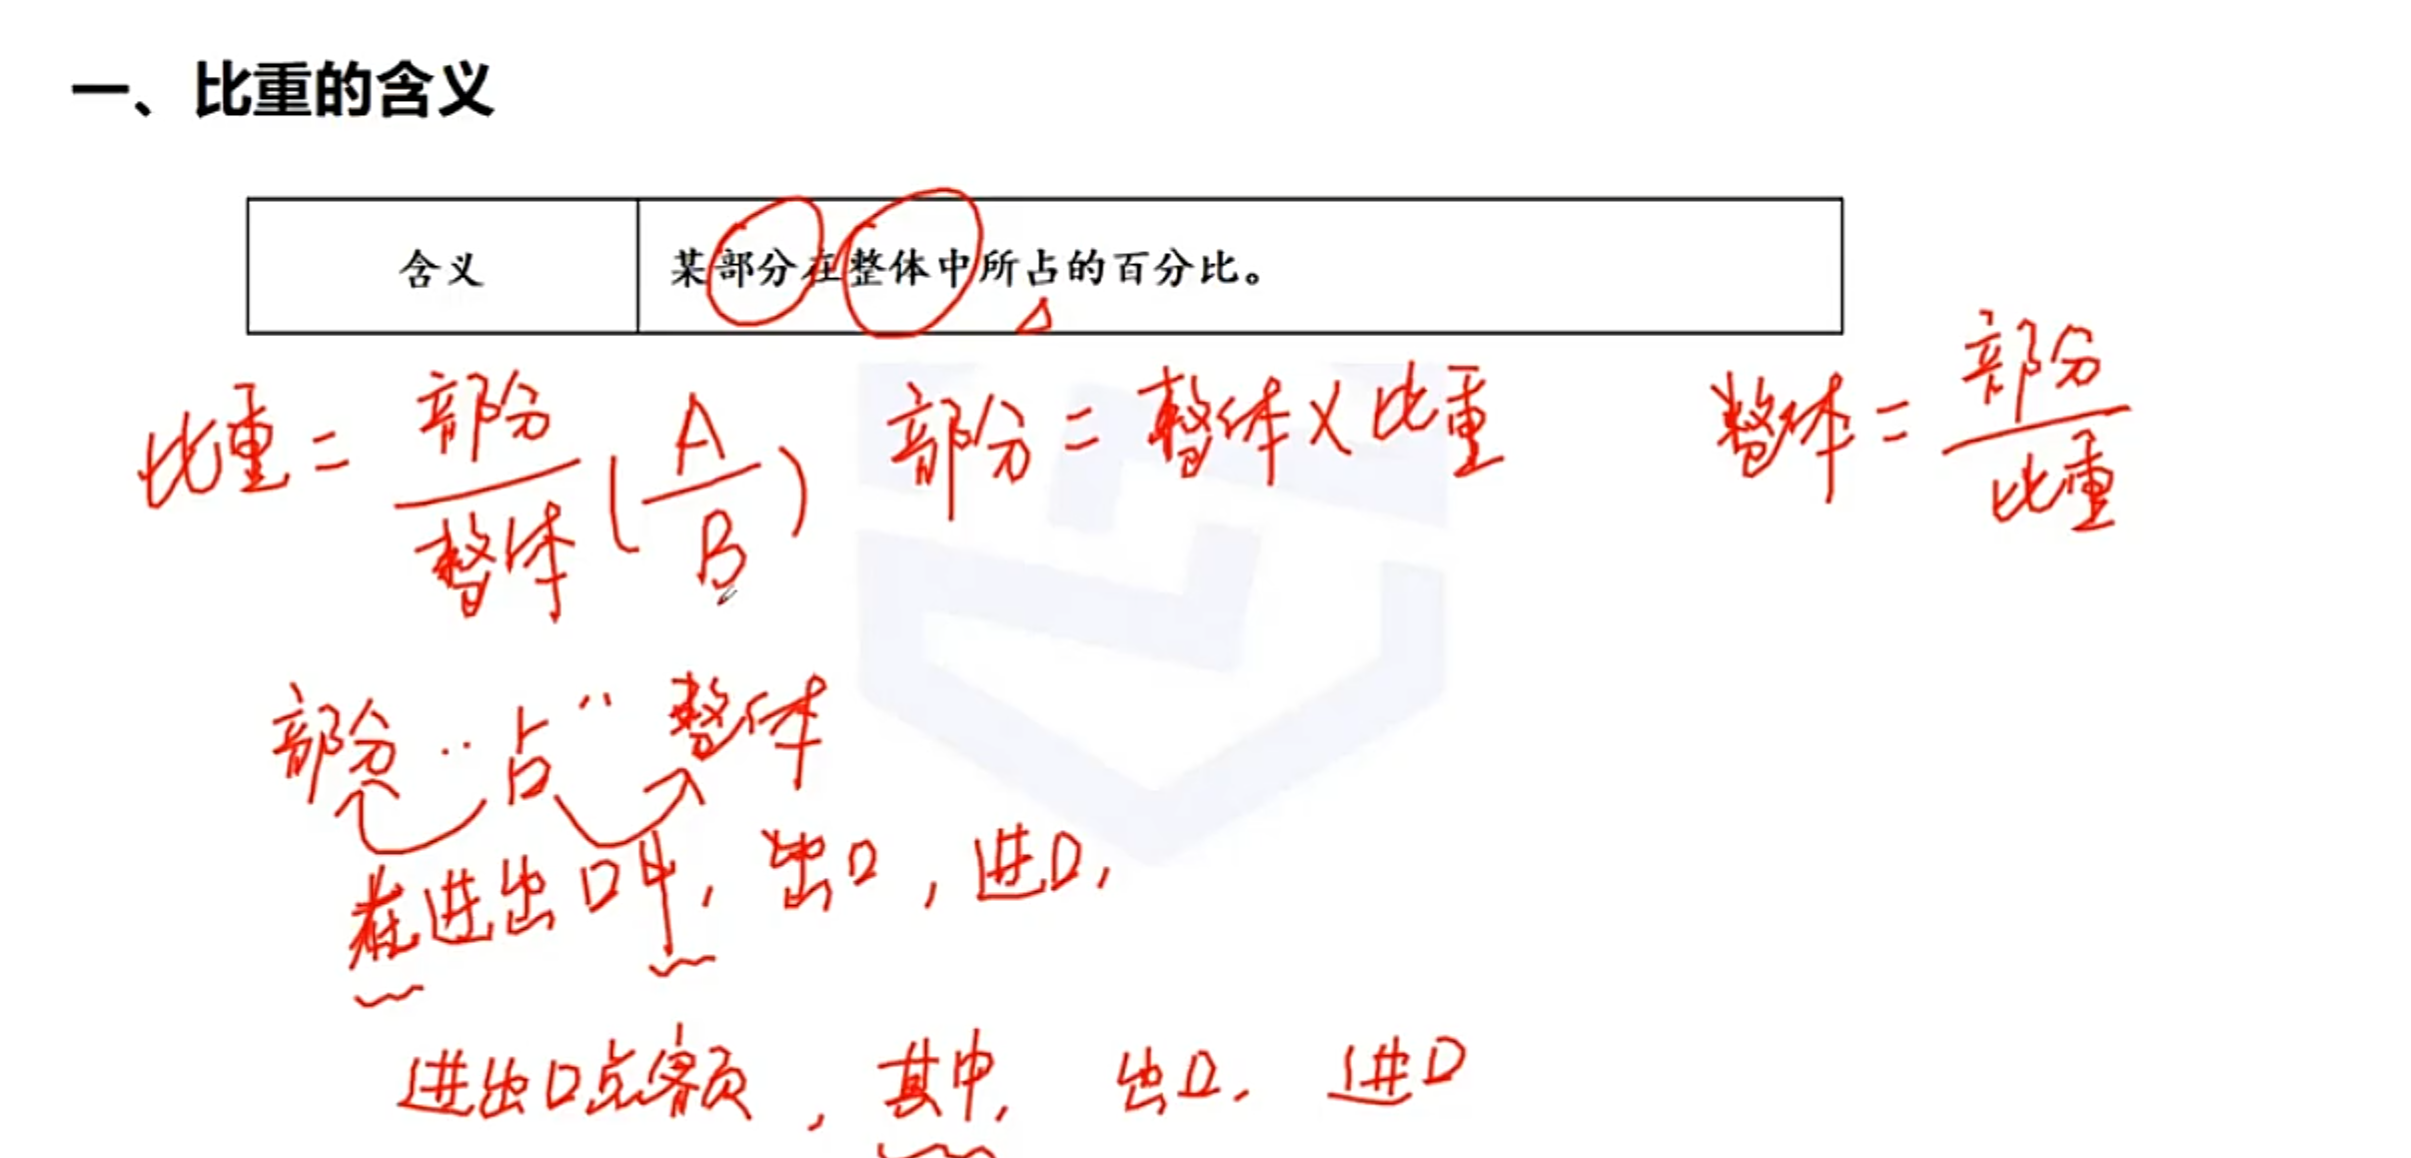 一、比重的含义
含义 某部分在整体中所占的百分比。
比重 = 部分/整体 (A/B) 部分 = 整体 × 比重 整体 = 部分/比重
部分 ·· 占 ·· 整体
在进出口中, 出口, 进口,
进出口总额, 其中, 出口, 进口